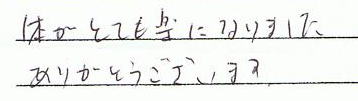 体がとても楽になりました
ありがとうございます